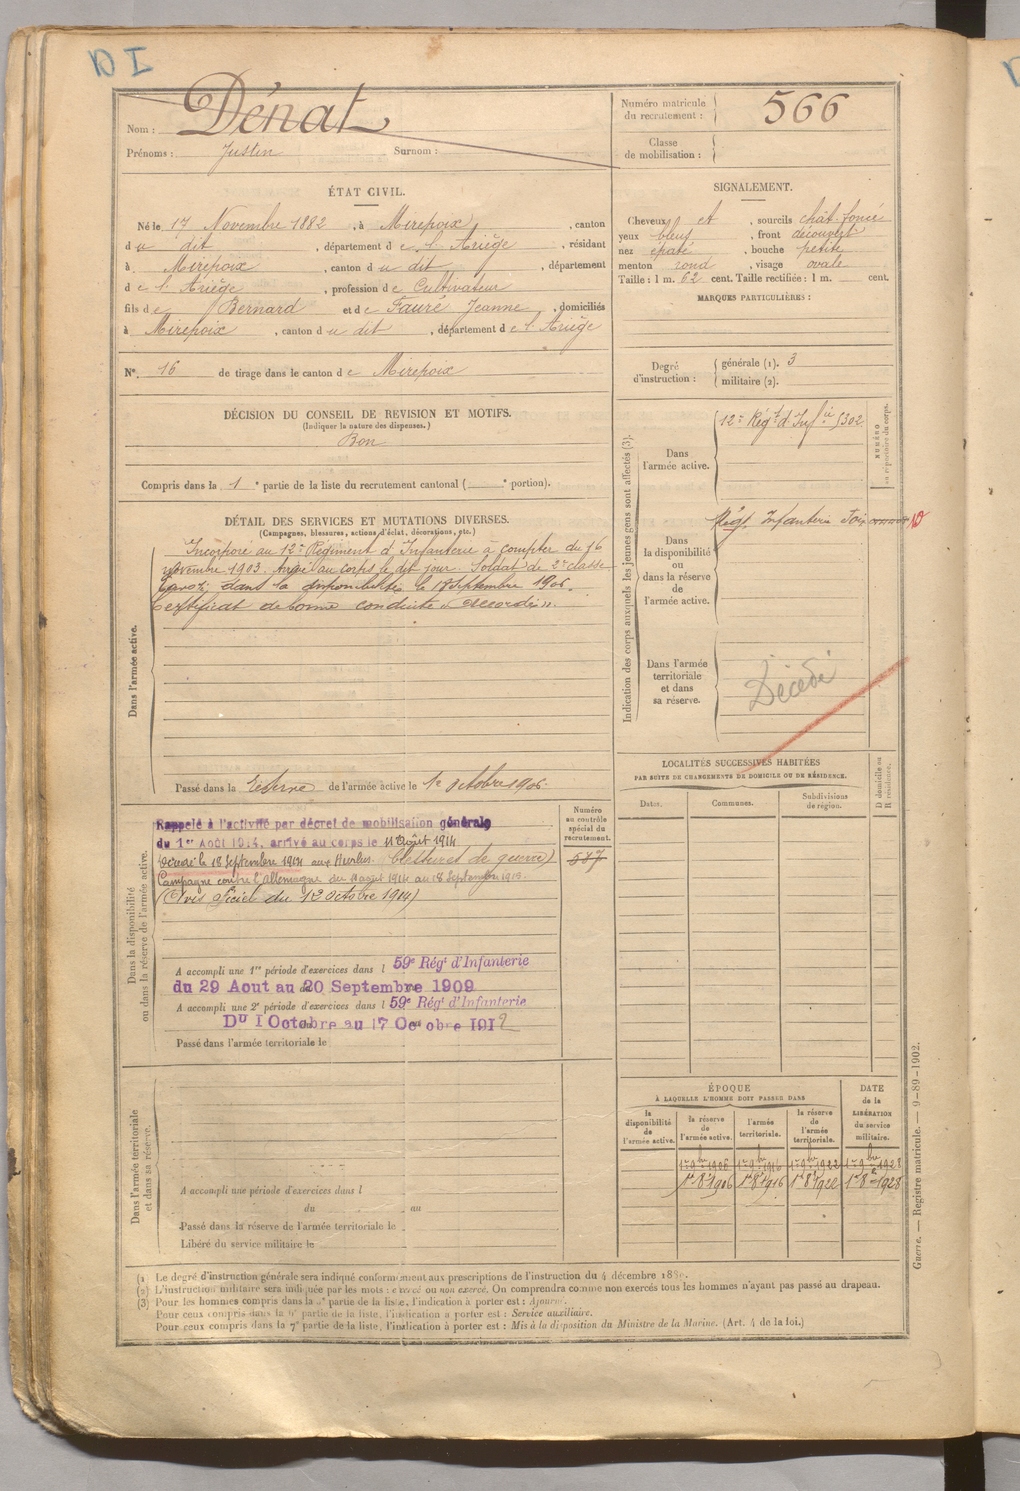 D I
Nom : Dénat
Prénoms : Justin Surnom :
Numéro matricule du recrutement : 566
Classe de mobilisation :
ÉTAT CIVIL.
Né le 17 Novembre 1882, à Mirepoix, canton
du dit, département de l'Ariège, résidant
à Mirepoix, canton du dit, département
de l'Ariège, profession de Cultivateur
fils de Bernard et de Fauré Jeanne, domiciliés
à Mirepoix, canton du dit, département de l'Ariège
N° 16 de tirage dans le canton de Mirepoix
SIGNALEMENT.
Cheveux et, sourcils chât. foncé
yeux bleus, front découvert
nez épaté, bouche petite
menton rond, visage ovale
Taille : 1 m. 62 cent. Taille rectifiée : 1 m. cent.
MARQUES PARTICULIÈRES :
Degré d'instruction : générale (1). 3
militaire (2).
DÉCISION DU CONSEIL DE REVISION ET MOTIFS.
(Indiquer la nature des dispenses.)
Bon
Compris dans la 1e partie de la liste du recrutement cantonal ( e portion).
DÉTAIL DES SERVICES ET MUTATIONS DIVERSES.
(Campagnes, blessures, actions d'éclat, décorations, etc.)
Dans l'armée active.
Incorporé au 12e Régiment d'Infanterie à compter du 16
novembre 1903. Arrivé au corps le dit jour. Soldat de 2e classe
Envoyé dans la disponibilité le 18 Septembre 1906.
Certificat de bonne conduite "accordé".
Passé dans la Réserve de l'armée active le 1er Octobre 1906.
Indication des corps auxquels les jeunes gens sont affectés (3).
NUMÉRO au répertoire du corps.
Dans l'armée active.
12e Régt d'Infie 5302
Dans la disponibilité ou dans la réserve de l'armée active.
Régt Infanterie Foix
Dans l'armée territoriale et dans sa réserve.
Décédé
LOCALITÉS SUCCESSIVES HABITÉES
PAR SUITE DE CHANGEMENTS DE DOMICILE OU DE RÉSIDENCE.
Dates. Communes. Subdivisions de région. D domicile ou R résidence.
Dans la disponibilité ou dans la réserve de l'armée active.
Numéro au contrôle spécial du recrutement.
587
Rappelé à l'activité par décret de mobilisation générale
du 1er Août 1914, arrivé au corps le 11 Août 1914
Décédé le 18 Septembre 1914 aux Hurlus (blessures de guerre)
Campagne contre l'Allemagne du 11 août 1914 au 18 Septembre 1914.
(Avis officiel du 13 octobre 1914)
A accompli une 1re période d'exercices dans l 59e Régt d'Infanterie
du 29 Aout au 20 Septembre 1909
A accompli une 2e période d'exercices dans l 59e Régt d'Infanterie
Du 1 Octobre au 17 Octobre 1912
Passé dans l'armée territoriale le
Dans l'armée territoriale et dans sa réserve.
A accompli une période d'exercices dans l
du au
Passé dans la réserve de l'armée territoriale le
Libéré du service militaire le
ÉPOQUE
À LAQUELLE L'HOMME DOIT PASSER DANS
DATE de la LIBÉRATION du service militaire.
la disponibilité de l'armée active. la réserve de l'armée active. l'armée territoriale. la réserve de l'armée territoriale.
1er 9bre 1906 1er 9bre 1916 1er 9bre 1922 1er 9bre 1928
1er 8e 1906 1er 8e 1916 1er 8e 1922 1er 8e 1928
Guerre. — Registre matricule. — 9-89-1902.
(1) Le degré d'instruction générale sera indiqué conformément aux prescriptions de l'instruction du 4 décembre 1889.
(2) L'instruction militaire sera indiquée par les mots : exercé ou non exercé. On comprendra comme non exercés tous les hommes n'ayant pas passé au drapeau.
(3) Pour les hommes compris dans la 5e partie de la liste, l'indication à porter est : Ajourné.
Pour ceux compris dans la 6e partie de la liste, l'indication à porter est : Service auxiliaire.
Pour ceux compris dans la 7e partie de la liste, l'indication à porter est : Mis à la disposition du Ministre de la Marine. (Art. 4 de la loi.)